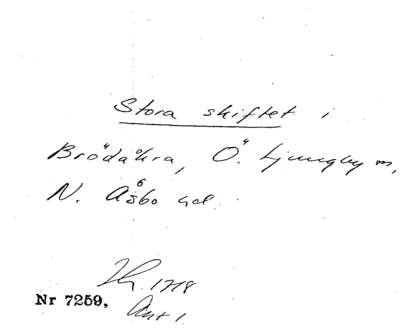 Stora skiftet i
Brödåkra, Ö. Ljungby m,
N. Åsbo hd.
1718
Nr 7259,
Ant 1.